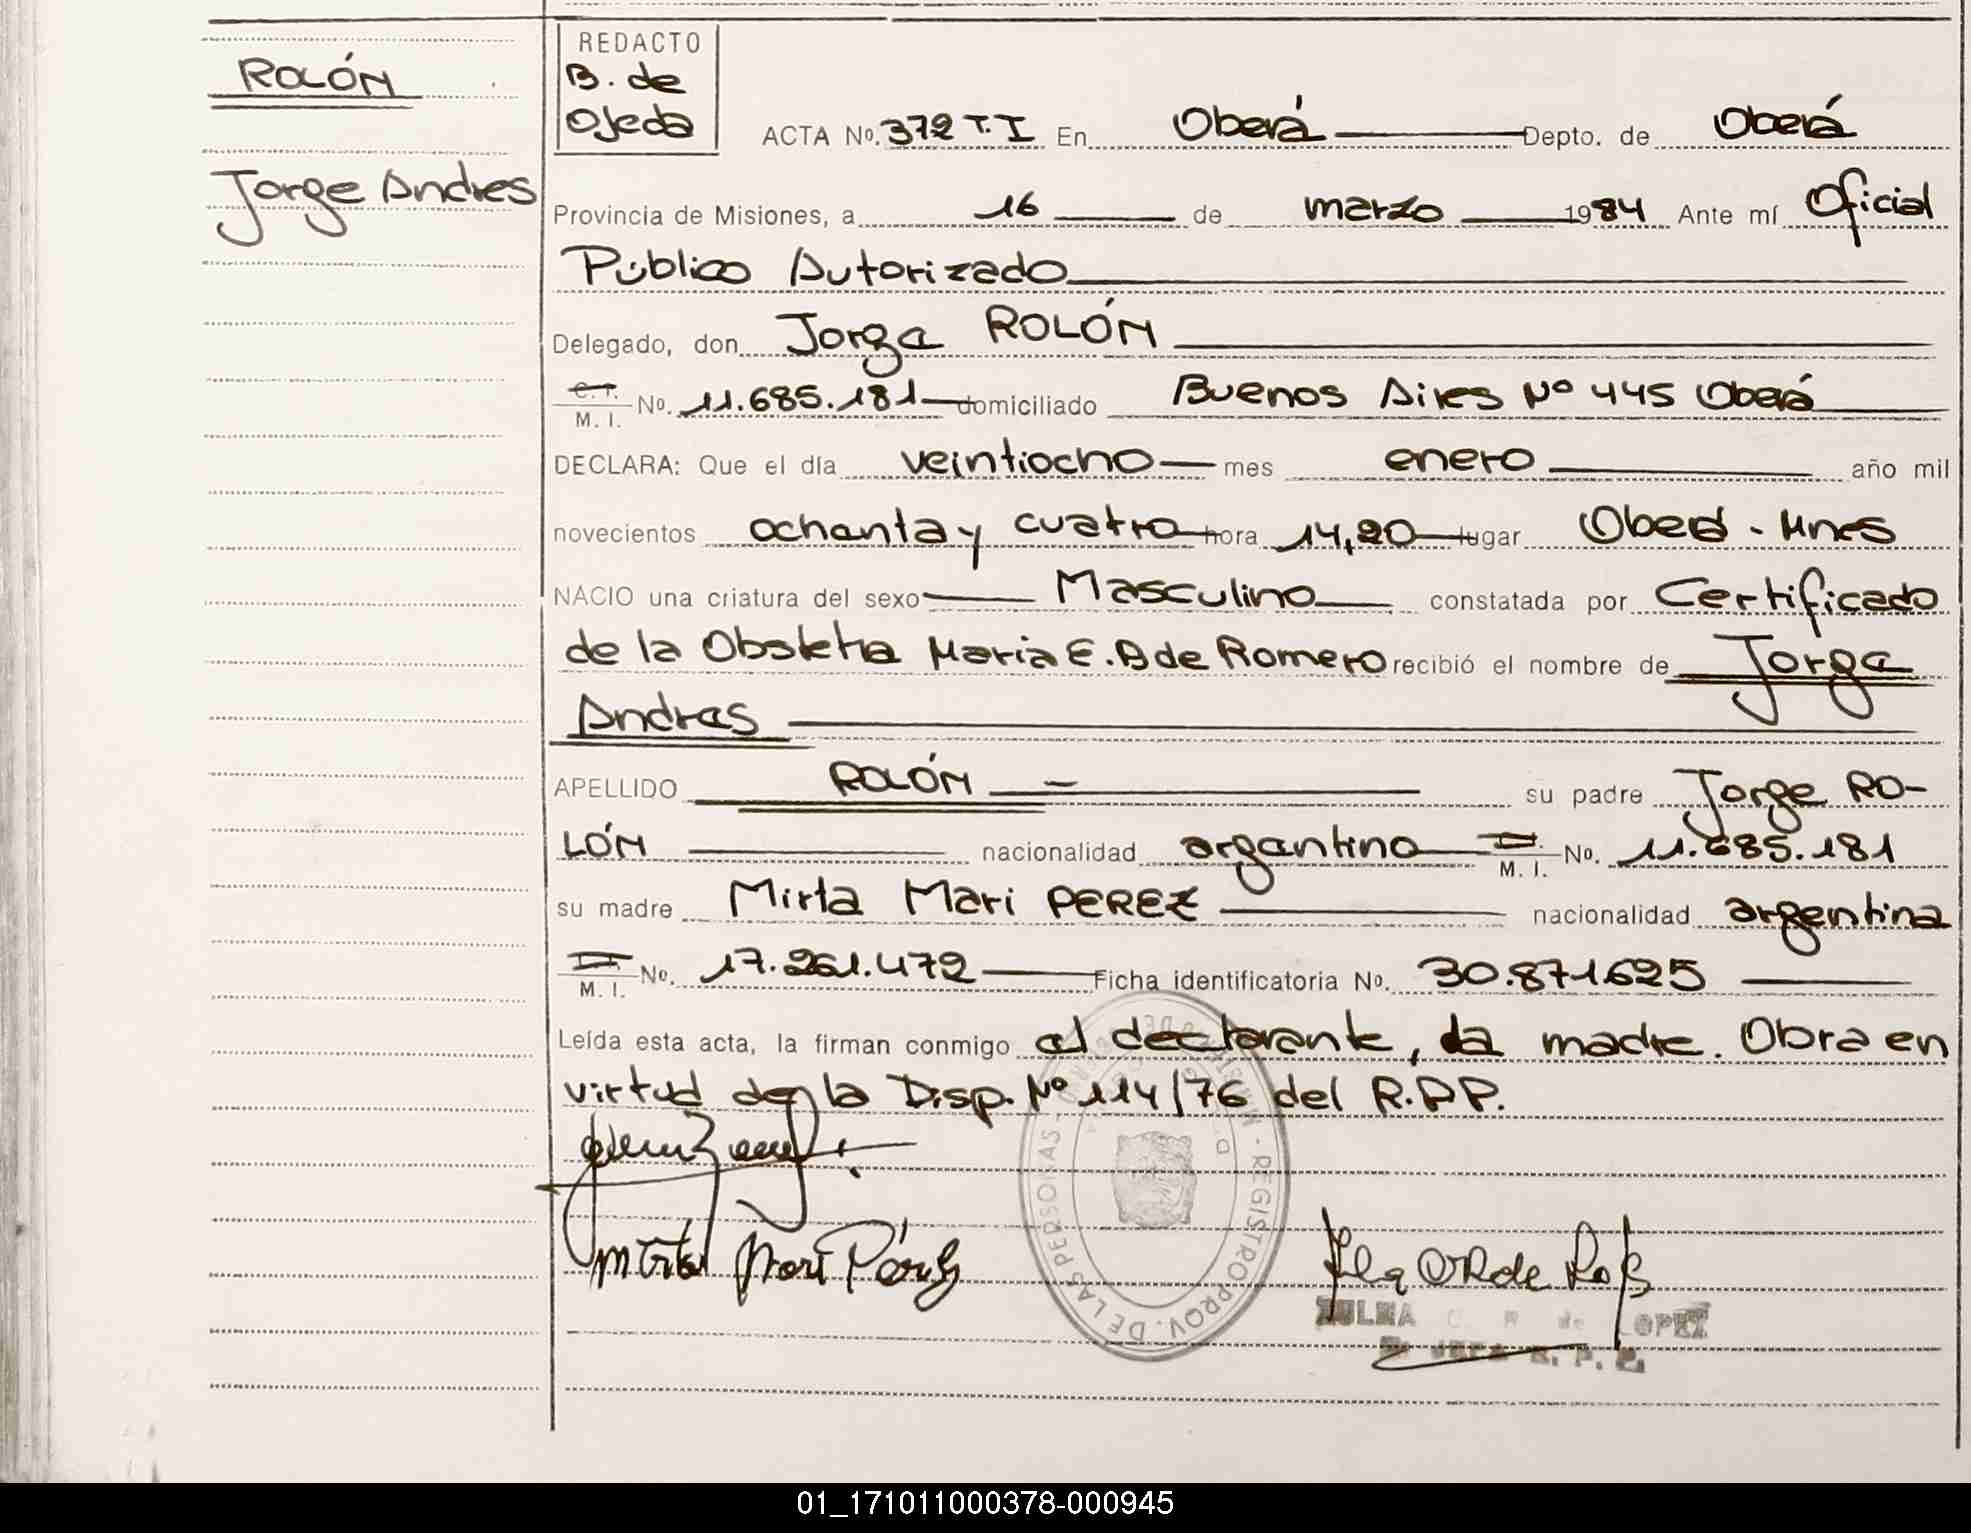 ROLÓN
Jorge Andres
REDACTO
B. de
Ojeda
ACTA No. 372 T.I En Oberá Depto. de Oberá
Provincia de Misiones, a 16 de marzo 1984 Ante mí Oficial
Público Autorizado
Delegado, don Jorge ROLÓN
C.I. M. I. No. 11.685.181 domiciliado Buenos Aires Nº 445 Oberá
DECLARA: Que el día veintiocho mes enero año mil
novecientos ochenta y cuatro hora 14,20 lugar Oberá - Mnes
NACIO una criatura del sexo Masculino constatada por Certificado
de la Obstetra Maria E. B de Romero recibió el nombre de Jorge
Andres
APELLIDO ROLÓN su padre Jorge RO-
LÓN nacionalidad argentino M. I. No. 11.685.181
su madre Mirta Mari PEREZ nacionalidad argentina
M. I. No. 17.261.472 Ficha identificatoria No. 30.871.625
Leída esta acta, la firman conmigo el declarante, la madre. Obra en
virtud de la Disp. Nº 114/76 del R.P.P.
Mirta Mari Pérez
REGISTRO PROV. DE LAS PERSONAS - MISIONES
ZULMA C. R. de LOPEZ
JEFA R. P. P.
01_171011000378-000945